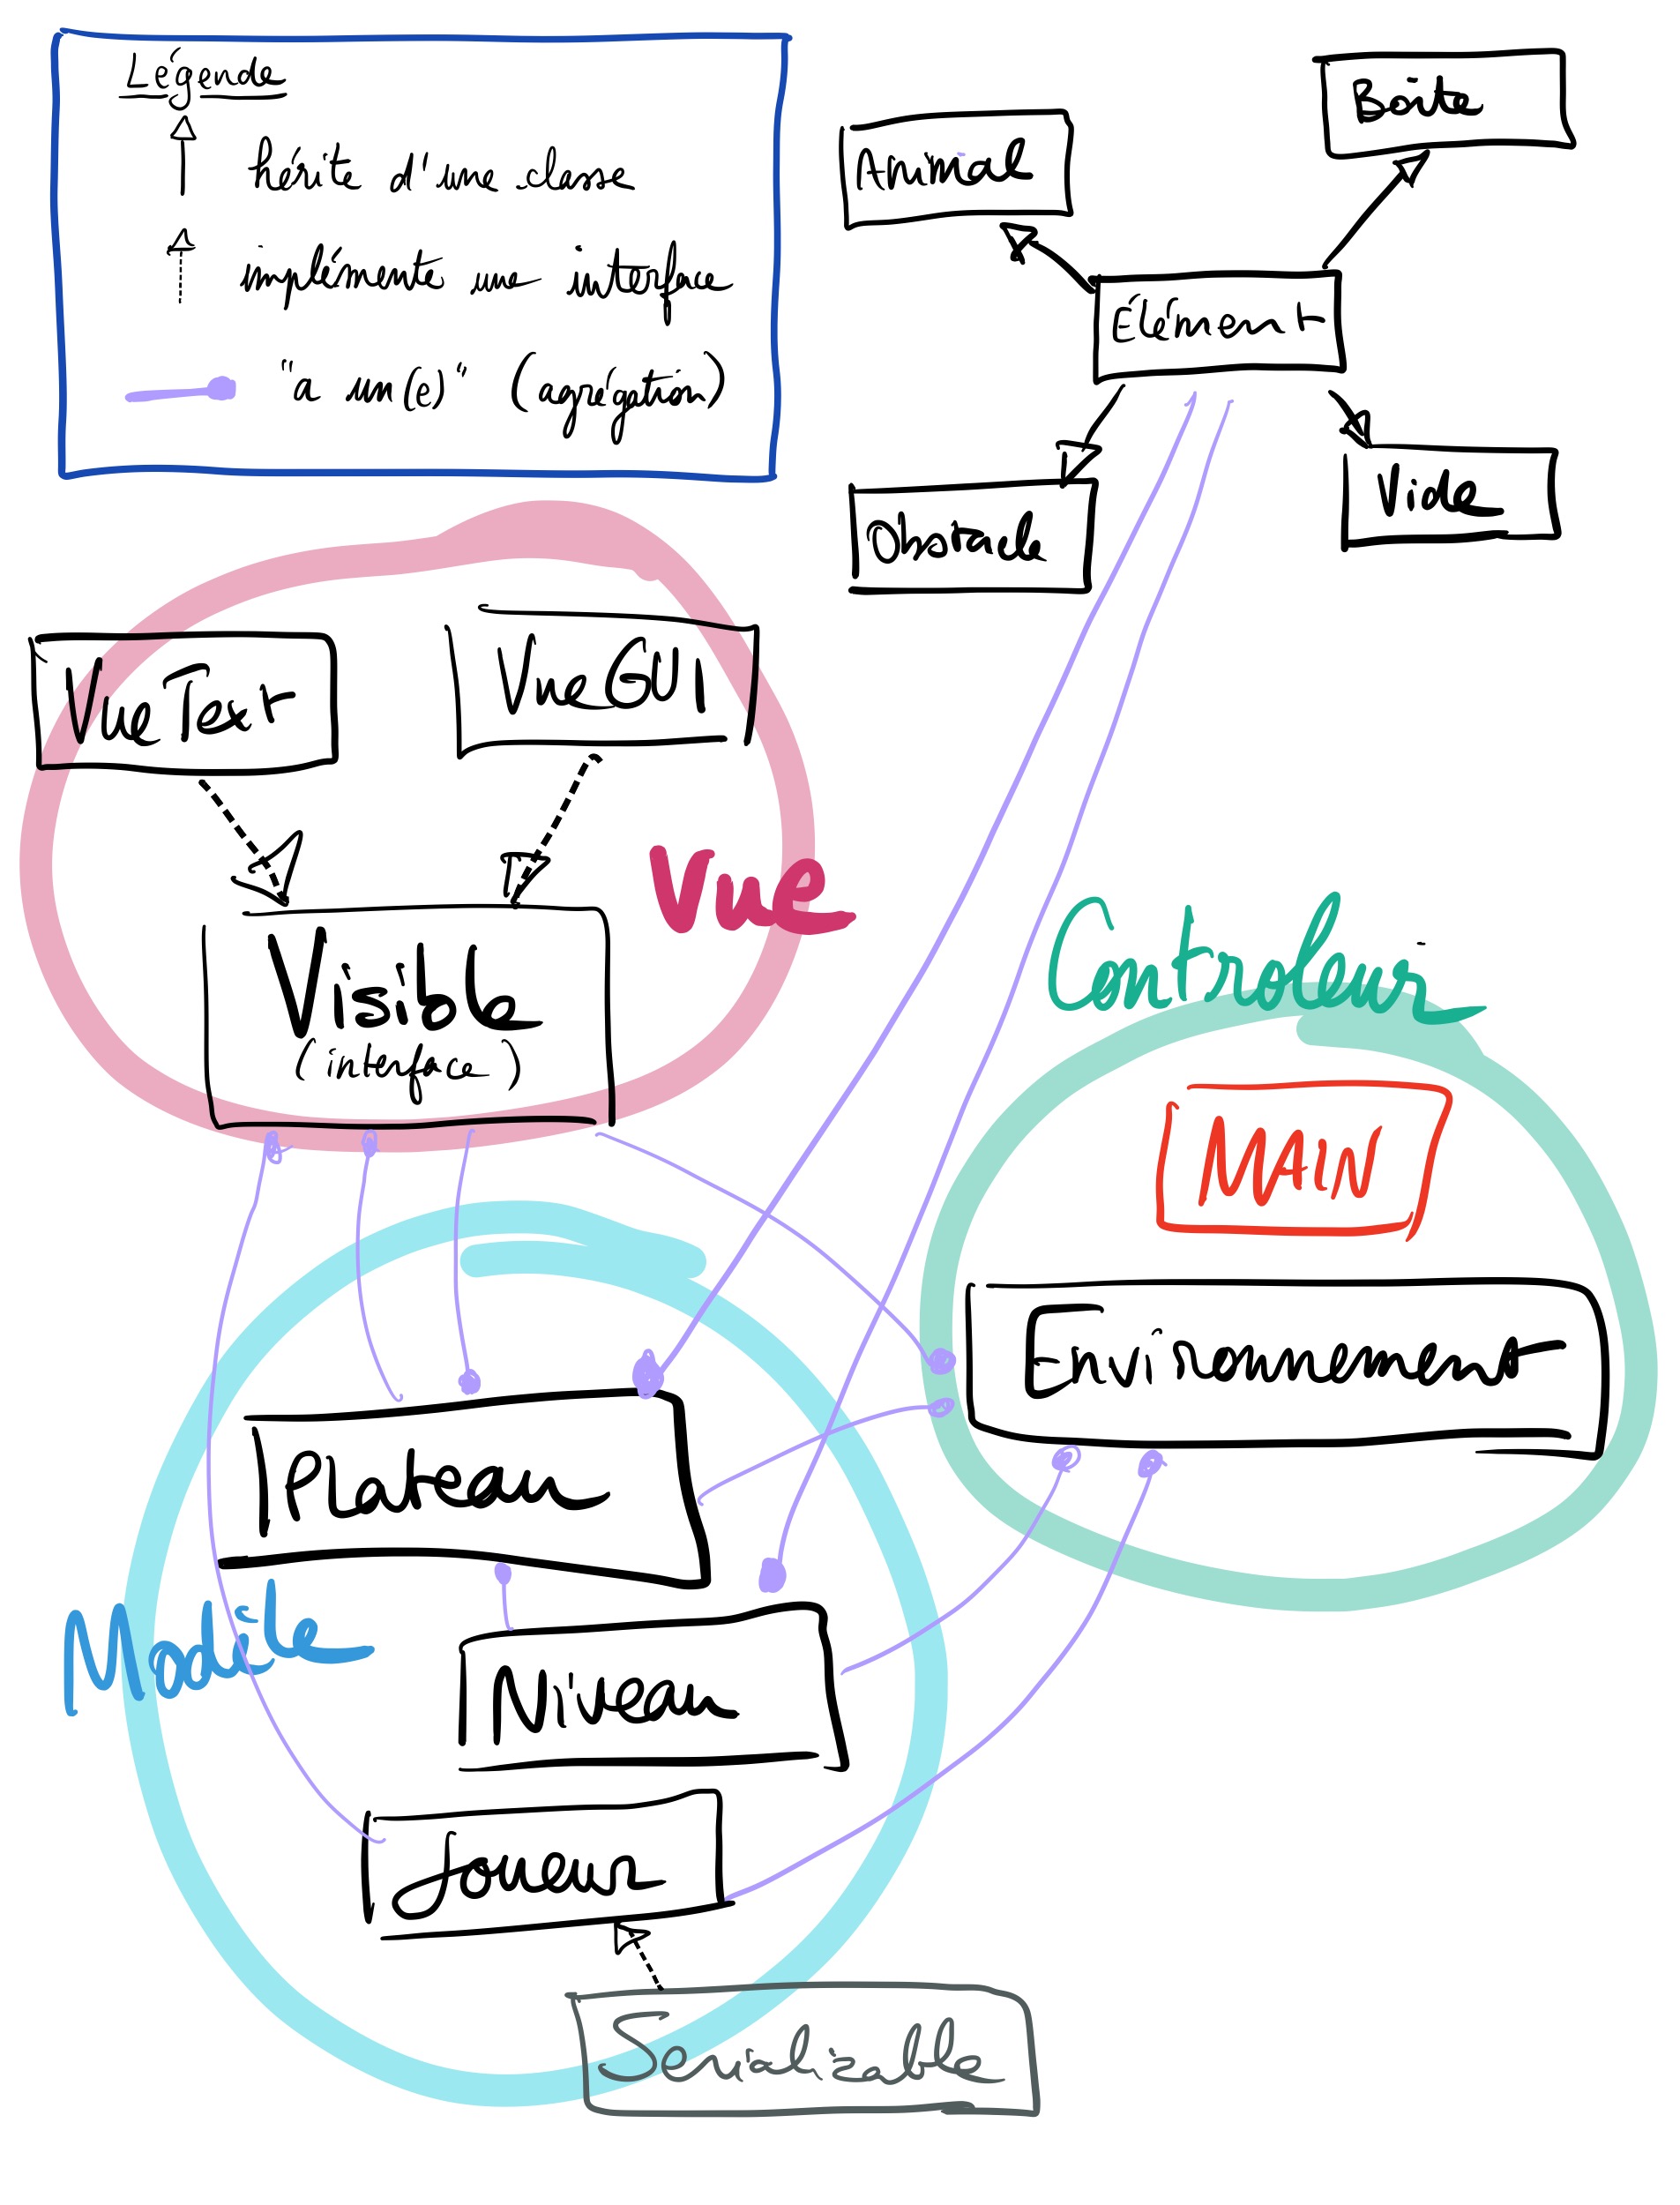 Légende
hérite d'une classe
implémente une interface
"a un(e)" (agrégation)
Animal
Boîte
Élément
Obstacle
Vide
VueText
VueGUI
Vue
Visible
(interface)
Controleur
MAIN
Environnement
Plateau
Modèle
Niveau
Joueur
Serializable